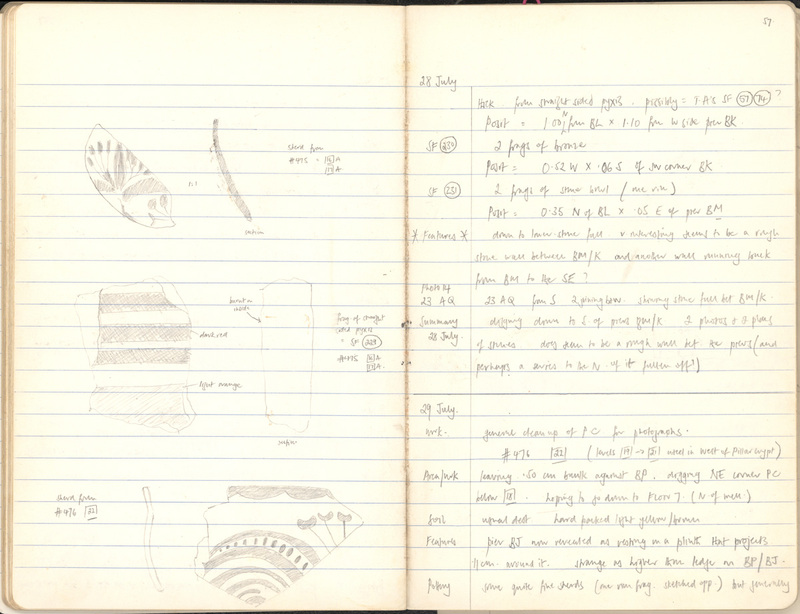 sherd from
#475 = 16 A
17 A
1:1
section
burnt on inside
frag of straight
sided pyxis
= SF 229
#475 16 A
17 A
dark red
light orange
section
sherd from
#476 22
57
28 July
thick from straight sided pyxis. possibly = TA's SF 57 74 ?
Posit = 1.00 N from BL x 1.10 from W side pier BK
SF 230 2 frags of bronze
Posit = 0.52 W x .06 S of SW corner BK
SF 231 2 frags of stone bowl (one rim)
Posit = 0.35 N of BL x .05 E of pier BM
* Features * down to lower stone fall & interesting seems to be a rough
stone wall between BM/K and another wall running back
from BM to the SE ?
Photo
23 AQ 23 AQ from S showing stone fall bet BM/K.
Summary digging down to S of piers BM/K 2 photos + plans
28 July. of stones does seem to be a rough wall bet the piers (and
perhaps a series to the N of it fallen off?)
29 July.
Work. general cleanup of PC for photographs.
#476 22 (levels 19 → 21 used in west of Pillar Crypt)
Area/work leaving .50 cm baulk against BP. digging NE corner PC
below 18. hoping to go down to Floor 7. (N of well)
Soil usual dest hard packed light yellow/brown
Features pier BJ now revealed as resting on a plinth that projects
11 cm. around it. strange as higher than ledge on BP/BJ.
Pottery some quite fine sherds (one rim frag. sketched opp.) but generally